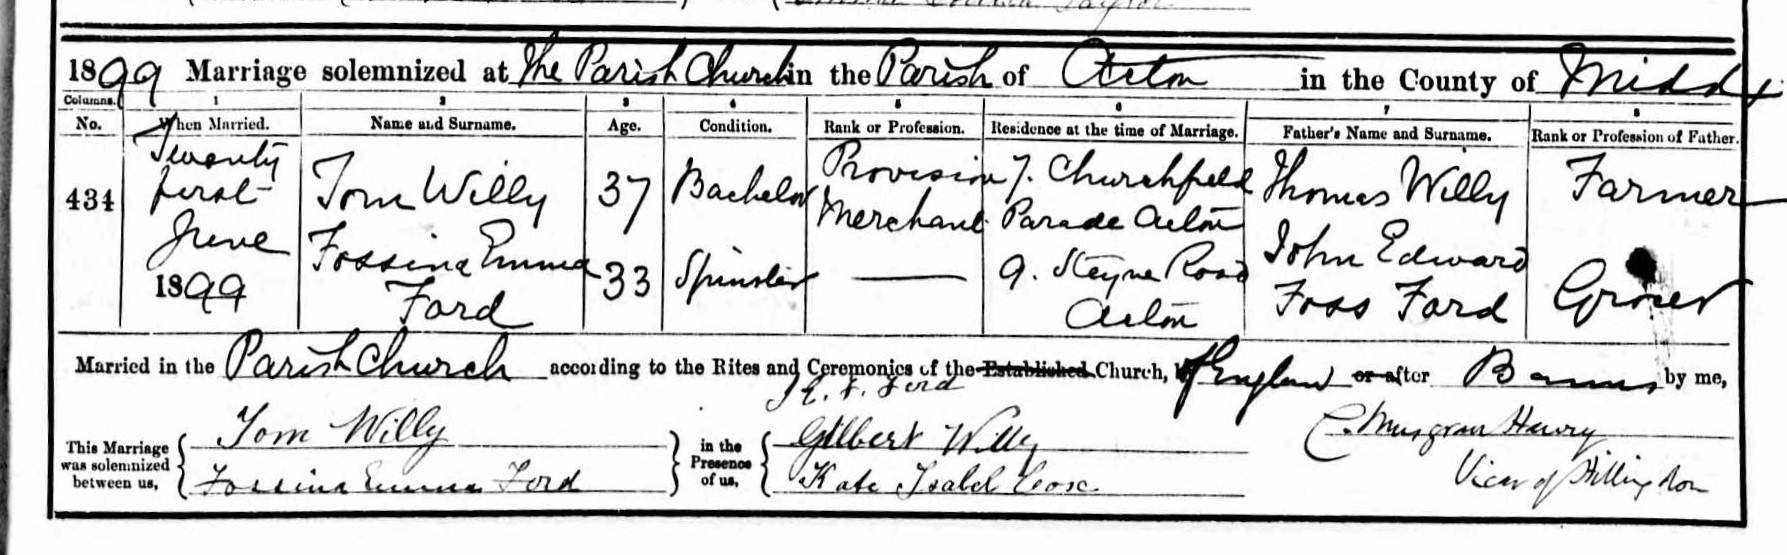 1899 Marriage solemnized at The Parish Church in the Parish of Acton in the County of Middx
Columns. 1 2 3 4 5 6 7 8
No. When Married. Name and Surname. Age. Condition. Rank or Profession. Residence at the time of Marriage. Father's Name and Surname. Rank or Profession of Father.
434 Twenty first June 1899 Tom Willy 37 Bachelor Provision Merchant 7. Churchfield Parade Acton Thomas Willy Farmer
Fossina Emma Ford 33 Spinster — 9. Steyne Road Acton John Edward Foss Ford Grocer
Married in the Parish Church according to the Rites and Ceremonies of the Established Church, of England or after Banns by me,
J. E. F. Ford
This Marriage was solemnized between us, Tom Willy in the Presence of us, Gilbert Willy C. Musgrave Harvey
Fossina Emma Ford Kate Isabel Vicar of Hillingdon